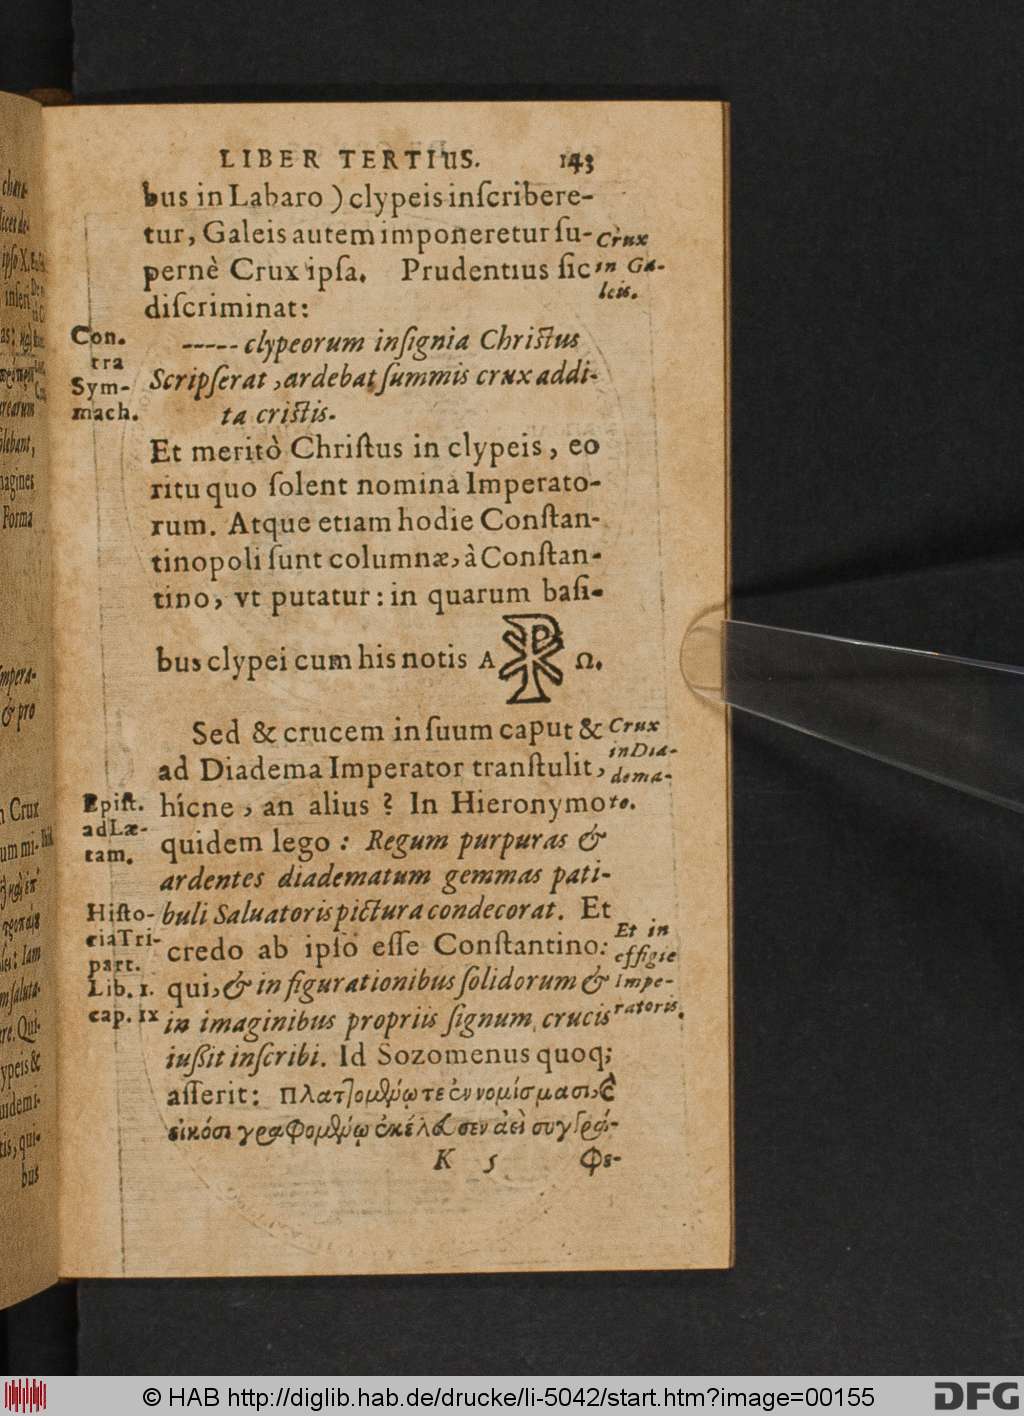 LIBER TERTIUS. 143
bus in Labaro ) clypeis inſcribere-
tur, Galeis autem imponeretur ſu-
pernè Crux ipſa. Prudentius ſic
diſcriminat:
Crux
in Ga-
leis.
----- clypeorum inſignia Chriſtus
Scripſerat, ardebat ſummis crux addi-
ta criſtis.
Con-
tra
Sym-
mach.
Et meritò Chriſtus in clypeis, eo
ritu quo ſolent nomina Imperato-
rum. Atque etiam hodie Conſtan-
tinopoli ſunt columnæ, à Conſtan-
tino, vt putatur: in quarum baſi-
bus clypei cum his notis A ☧ Ω.
Sed & crucem in ſuum caput &
ad Diadema Imperator tranſtulit,
hícne, an alius? In Hieronymo
quidem lego: Regum purpuras &
ardentes diadematum gemmas pati-
buli Saluatoris pictura condecorat. Et
credo ab ipſo eſſe Conſtantino:
qui, & in figurationibus ſolidorum &
in imaginibus propriis ſignum crucis
iußit inſcribi. Id Sozomenus quoq;
aſſerit: Πλατ]ομθρύῳ τε ἐν νομίσμασι, ϗ
εἰκόσι γραφομθρύῳ ἐκέλευσεν ἀεὶ συγγρά-
K 5 φε-
Crux
in Dia-
dema-
te.
Epiſt.
ad Læ-
tam.
Hiſto-
ria Tri-
part.
Lib. 1.
cap. ix
Et in
effigie
Impe-
ratoris.
chara-
ipſo X,
inſeri
glebant,
imagines
Forma
Impera-
& pro
Crux
um mi-
ſaluta-
re. Qui-
ypeis &
uidem i-
tis, qui-
bus
© HAB http://diglib.hab.de/drucke/li-5042/start.htm?image=00155
DFG